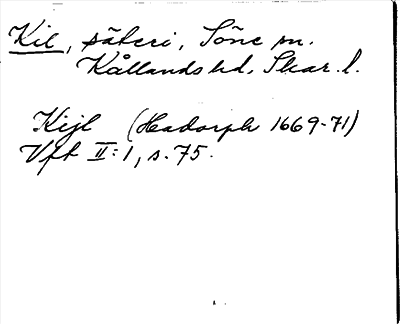 Kil, säteri, Söne sn.
Kållands hd, Skar. l.
Kijl (Hadorph 1669-71)
Vft II:1, s. 75.